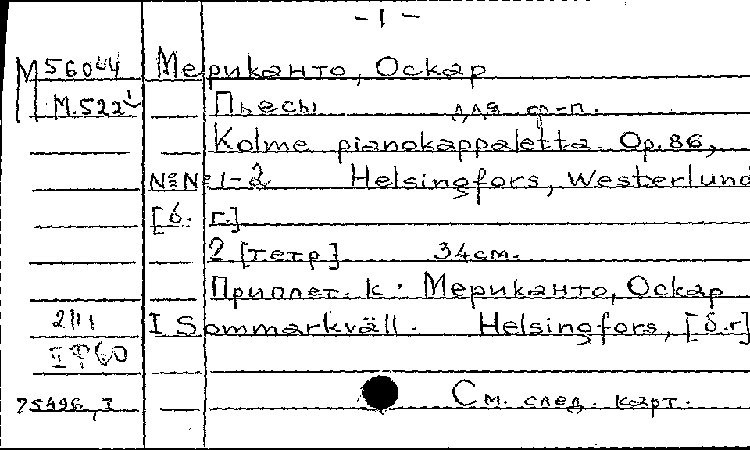 - 1 -
М 56044 Мериканто, Оскар
М.522¹ Пьесы для ф-п.
Kolme pianokappaletta Op. 86,
№№ 1-2 Helsingfors, Westerlund
[б. г.]
2 [тетр] 34см.
Приплет. к: Мериканто, Оскар
2III I Sommarkväll. Helsingfors, [б.г]
60
75496, I См. след. карт.